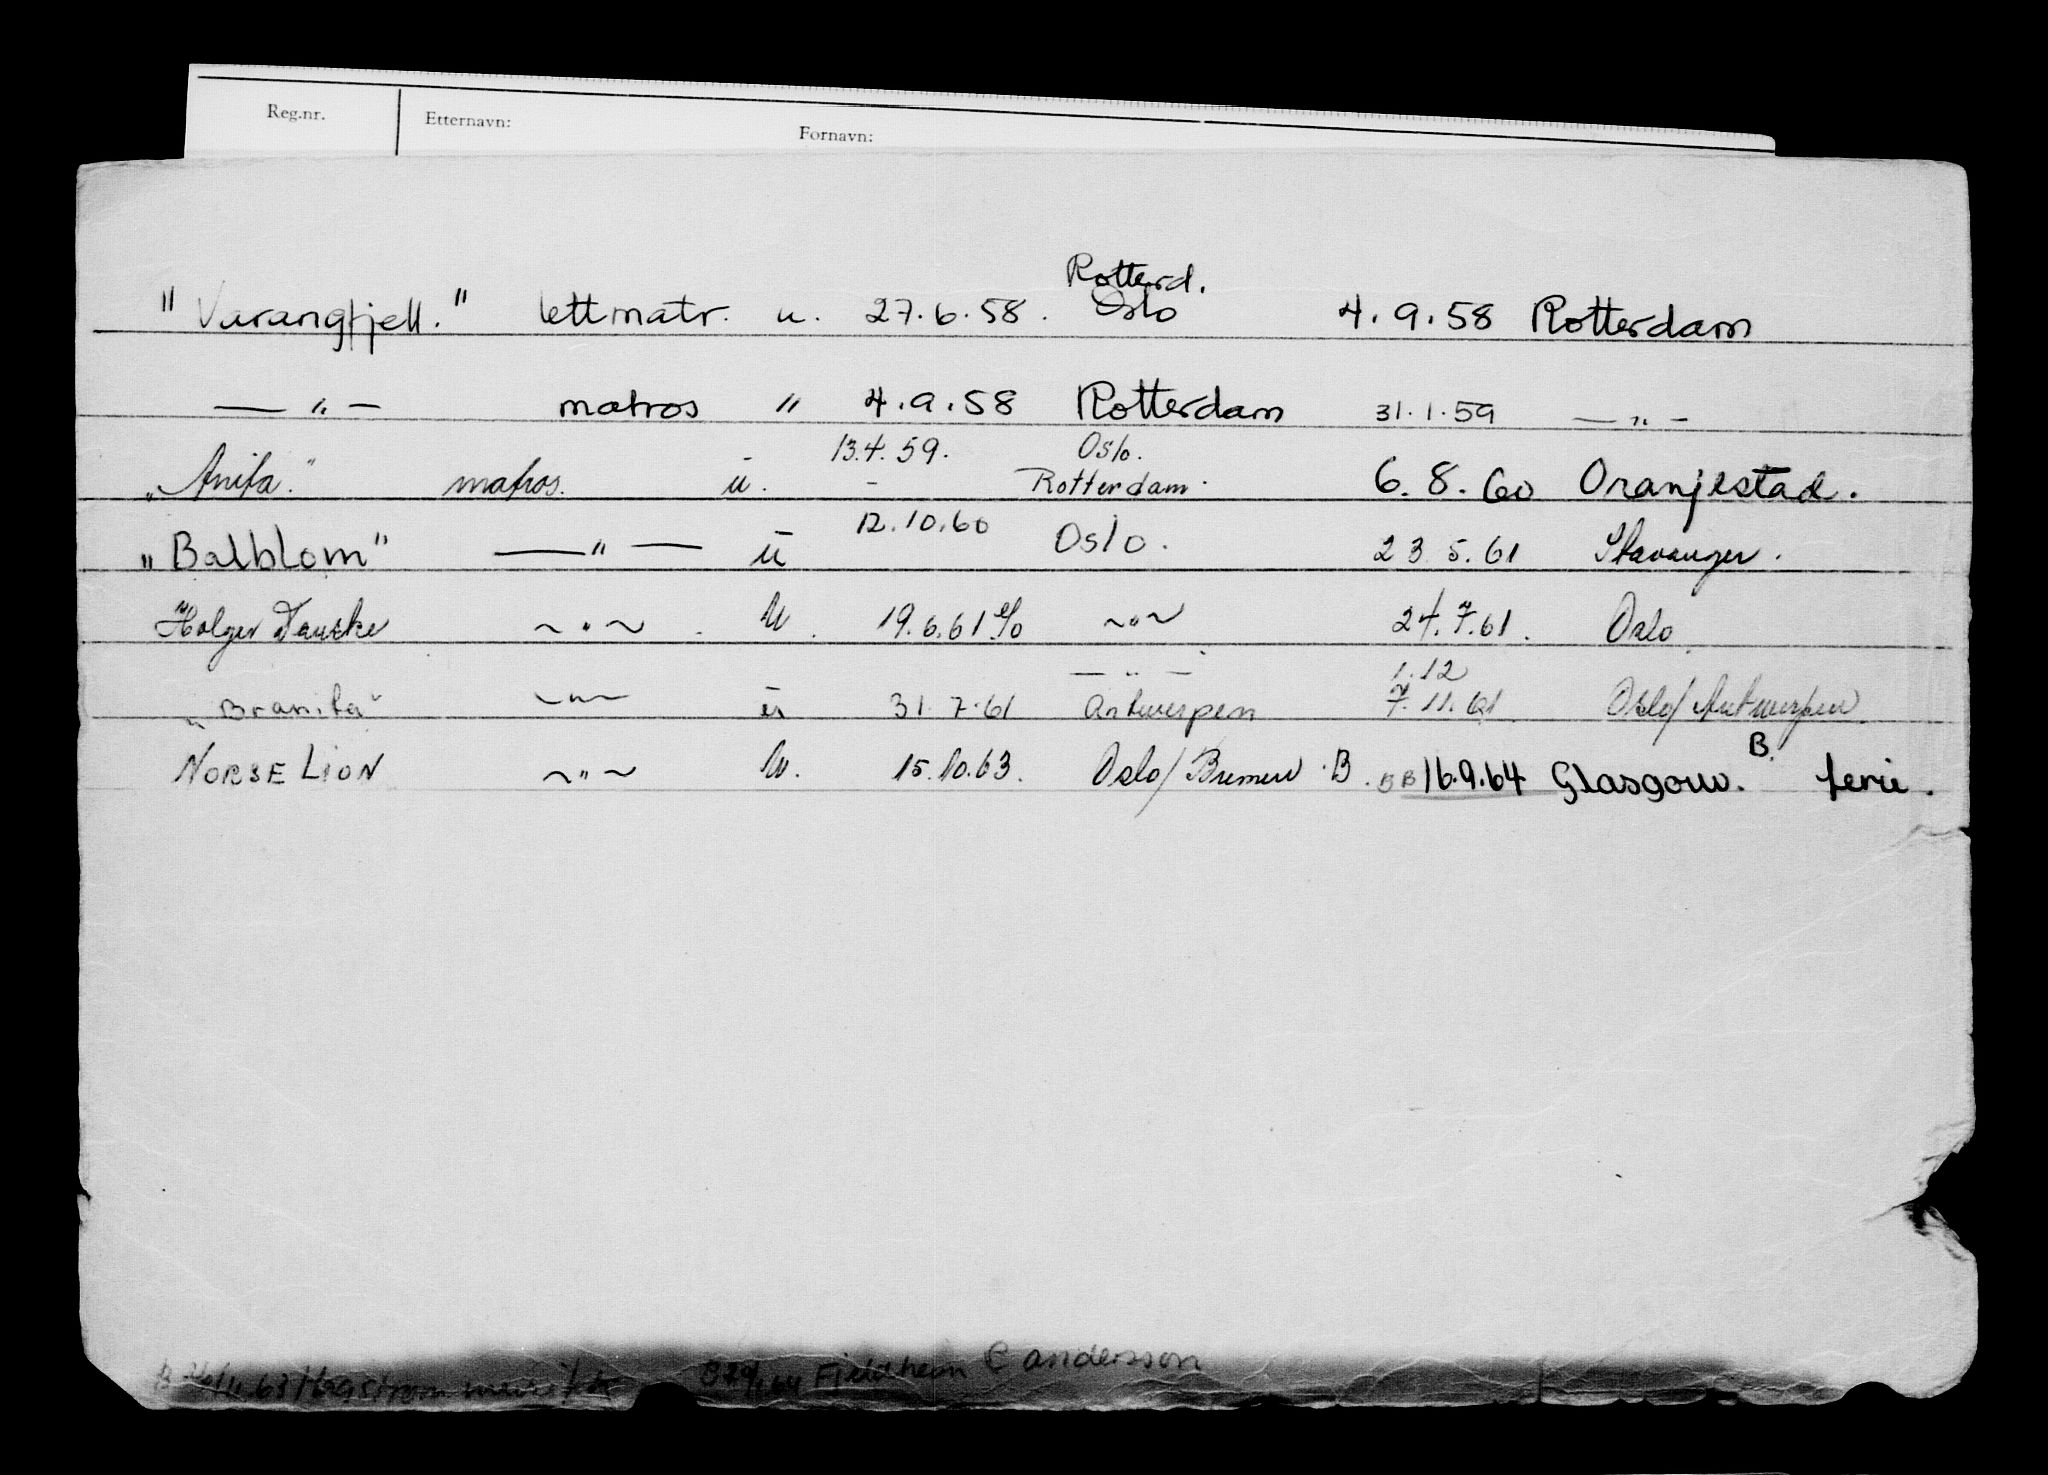 Reg.nr. Etternavn: Fornavn:
Rotterd.
"Varangfjell." lettmatr. u. 27.6.58. Oslo 4.9.58 Rotterdam
— " — matros " 4.9.58 Rotterdam 31.1.59 — " —
13.4.59. Oslo.
"Anita." matros. u. - Rotterdam. 6.8.60 Oranjestad.
12.10.60
"Balblom" — " — u Oslo. 23.5.61 Stavanger.
Holger Danske ~ " ~ . U. 19.6.61 ~ " ~ 24.7.61. Oslo
— " — 1.12
"Branita" ~ " ~ u 31.7.61 Antwerpen 7.11.61. Oslo/Antwerpen
B.
NORSE LION ~ " ~ U. 15.10.63. Oslo/Bremen B. BB 16.9.64 Glasgow. ferie.
Fjeldheim C andersson